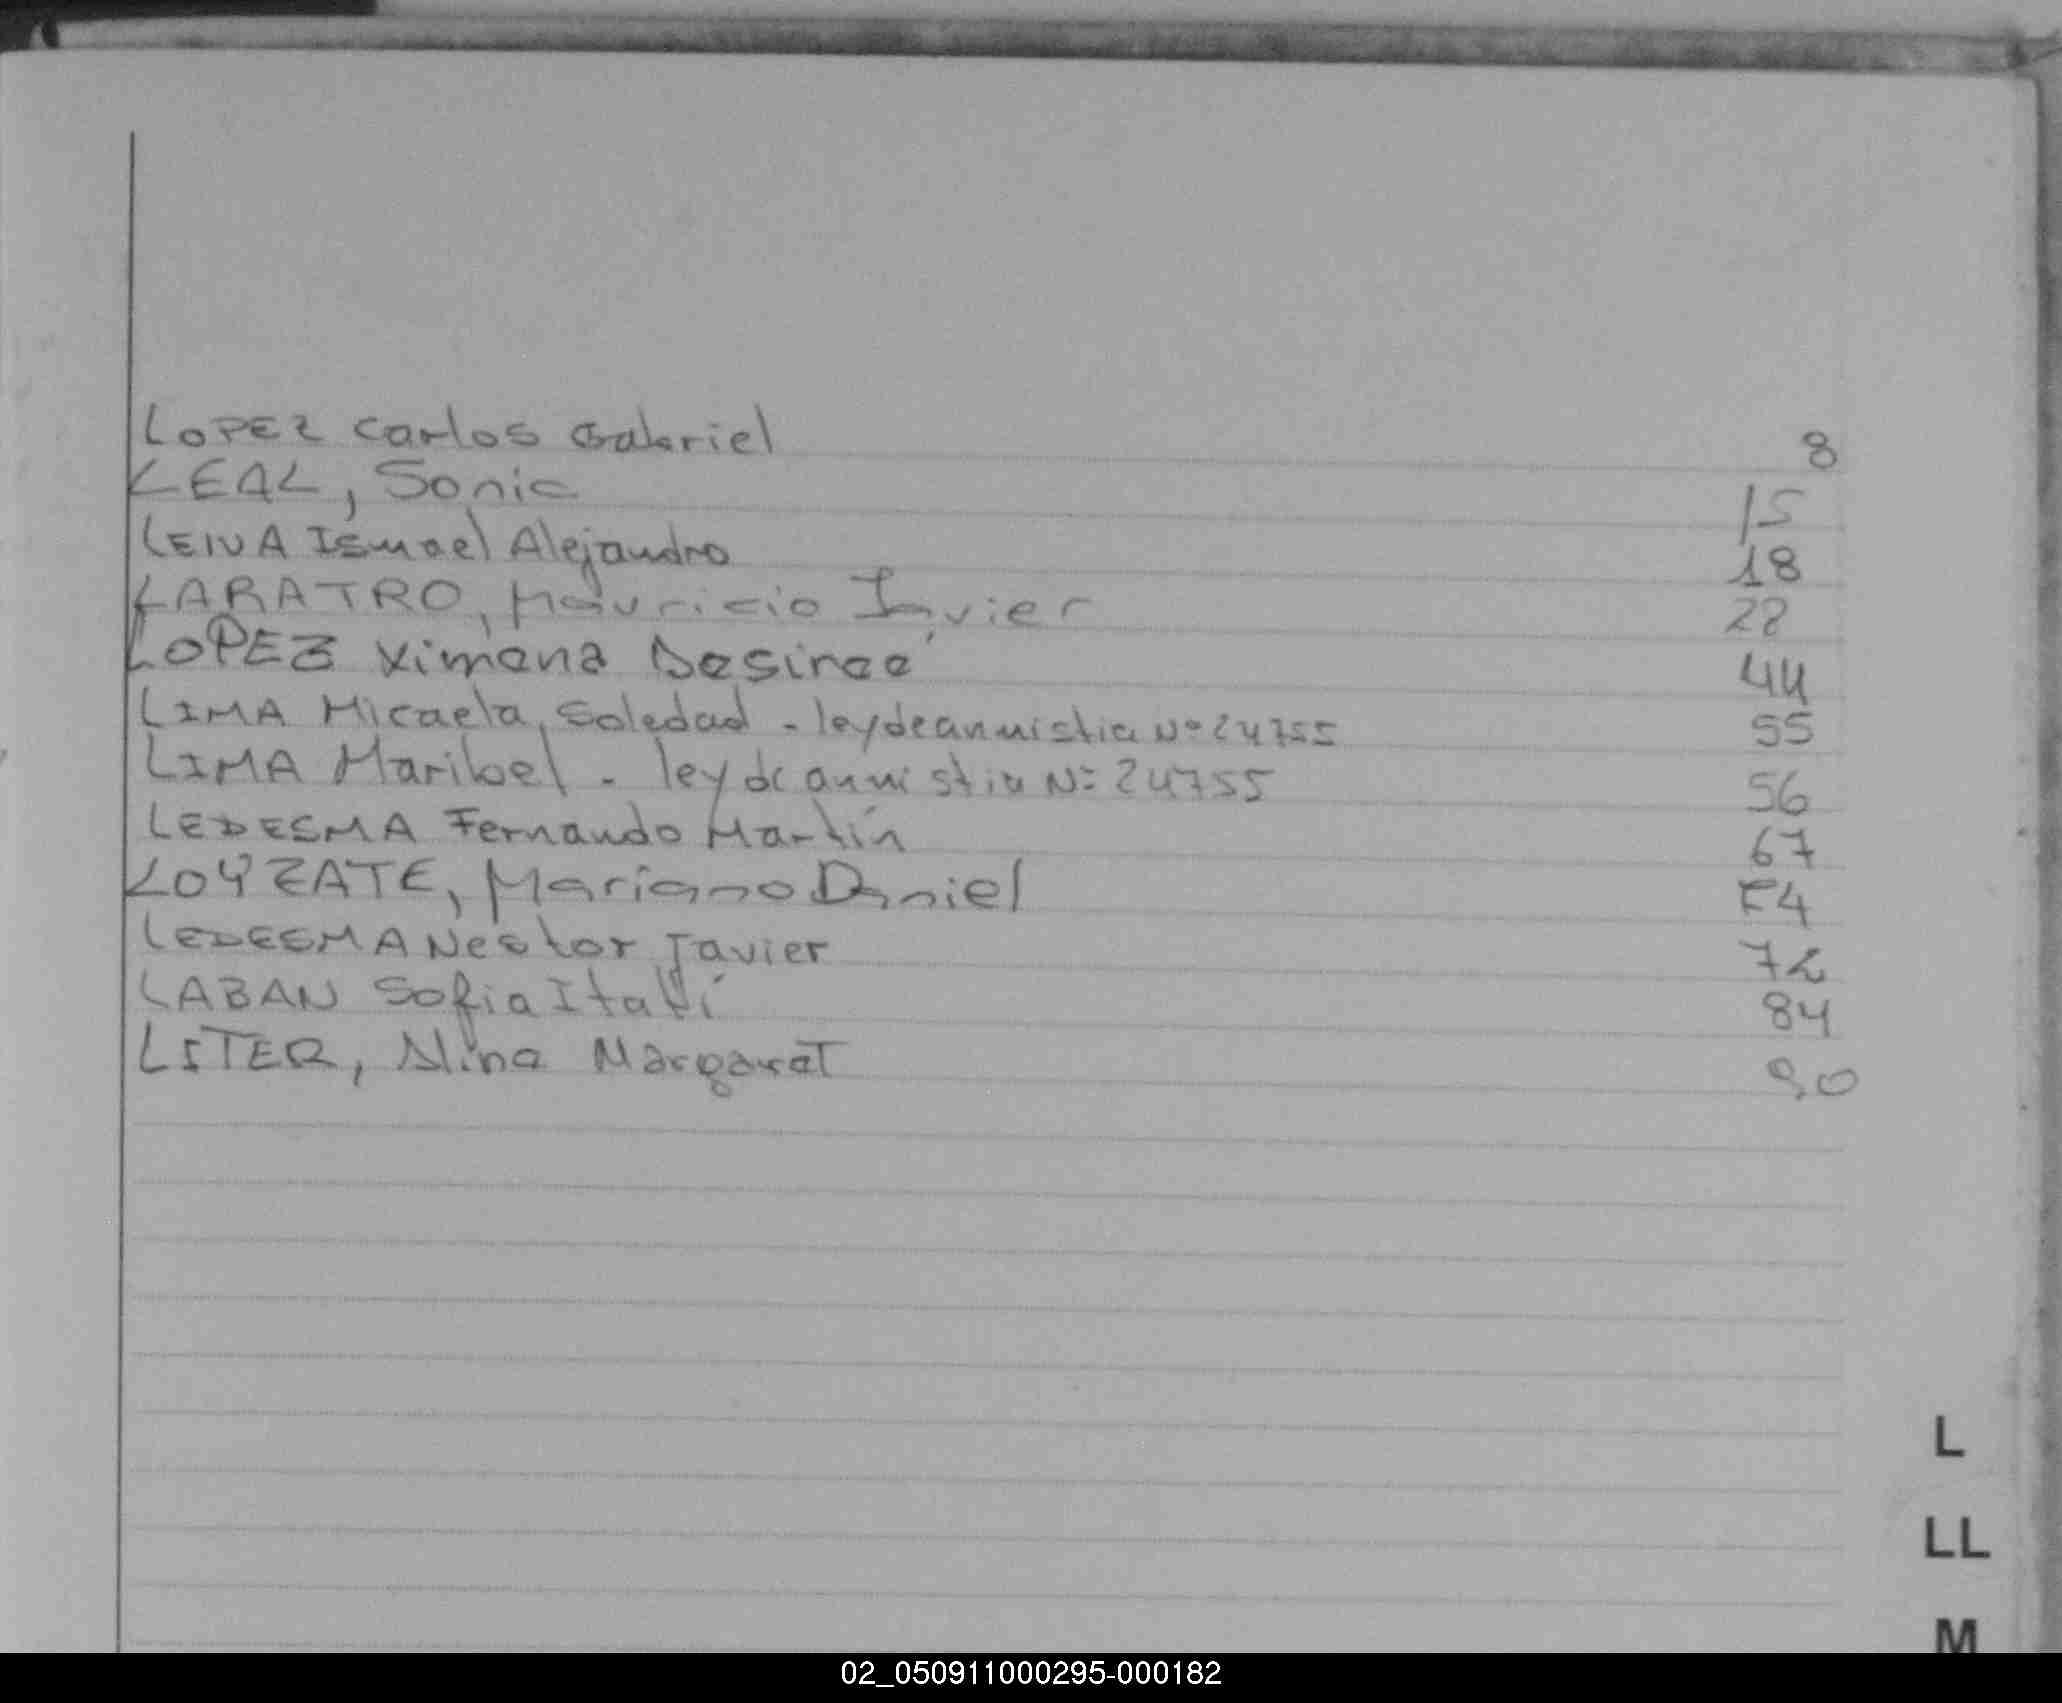 LOPEZ Carlos Gabriel 8
LEAL, Sonia 15
LEIVA Ismael Alejandro 18
LABATRO, Mauricio Javier 22
LOPEZ Ximena Desireé 44
LIMA Micaela Soledad - ley de amnistia Nº 24755 55
LIMA Maribel - ley de amnistia Nº 24755 56
LEDESMA Fernando Martín 67
LOYZATE, Mariano Daniel 74
LEDESMA Nestor Javier 72
LABAN Sofia Itatí 84
LITER, Alina Margaret 90
L
LL
M
02_050911000295-000182